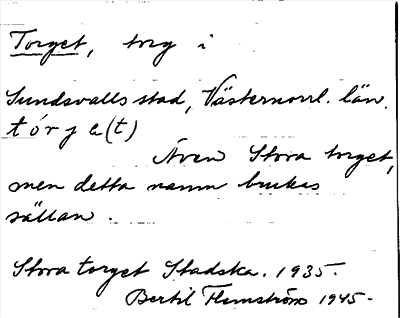 Torget, torg i
Sundsvalls stad, Västernorrl. län.
tórje(t)
Även Stora torget,
men detta namn brukas
sällan.
Stora torget Stadska. 1935.
Bertil Flemström 1945.